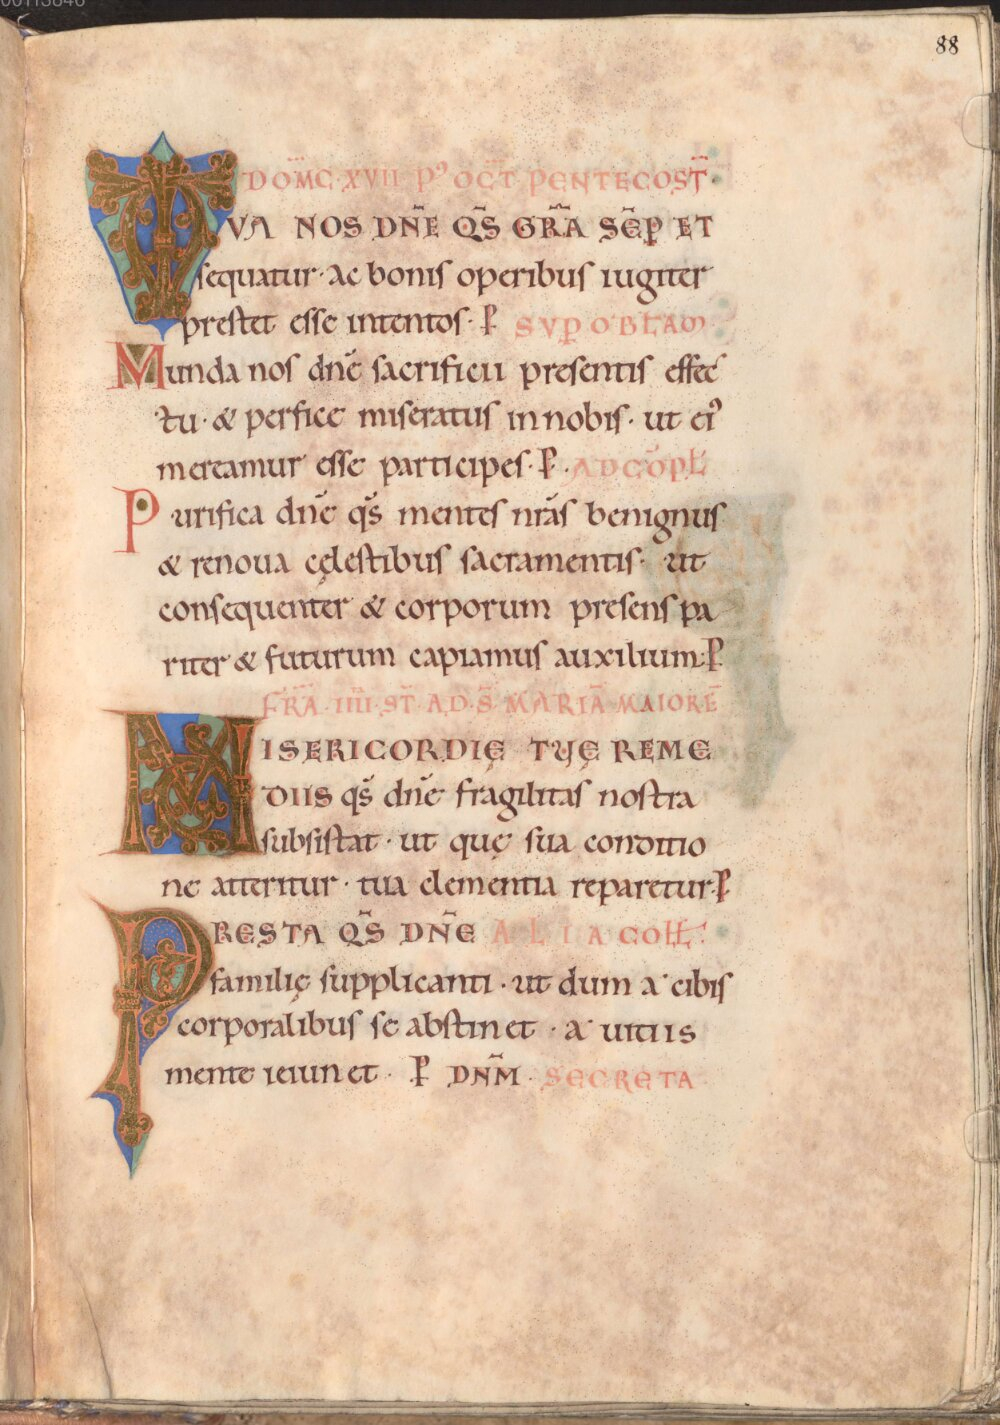 88
DOM̄C·XVII· Pꝰ OC̄T PENTECOST̄·
TVA NOS DN̄E QS̄ GR̄A SEP̄ ET
sequatur· ac bonis operibus iugiter
prestet esse intentos· P̄ SVP̱ OBLAM̄·
Munda nos dn̄e sacrificii presentis effec
tu· & perfice miseratus in nobis· ut ei᾿
mereamur esse participes· P̄· AD COP̄L̄
Purifica dn̄e qs̄ mentes nr̄as benignus
& renoua cęlestibus sacramentis· ut
consequenter & corporum presens pa
riter & futurum capiamus auxilium· P̄
FR̄A· IIII· ST̄· AD· S̄· MARIĀ MAIORĒ
MISERICORDIĘ TUĘ REME
DIIS qs̄ dn̄e fragilitas nostra
subsistat· ut quę sua conditio
ne atteritur· tua clementia reparetur· P̄
PRESTA QS̄ DN̄E ALIA COLL̄·
familię supplicanti· ut dum a cibis
corporalibus se abstinet· a uitiis
mente ieiunet· P̄ DN̄M· SECRETA